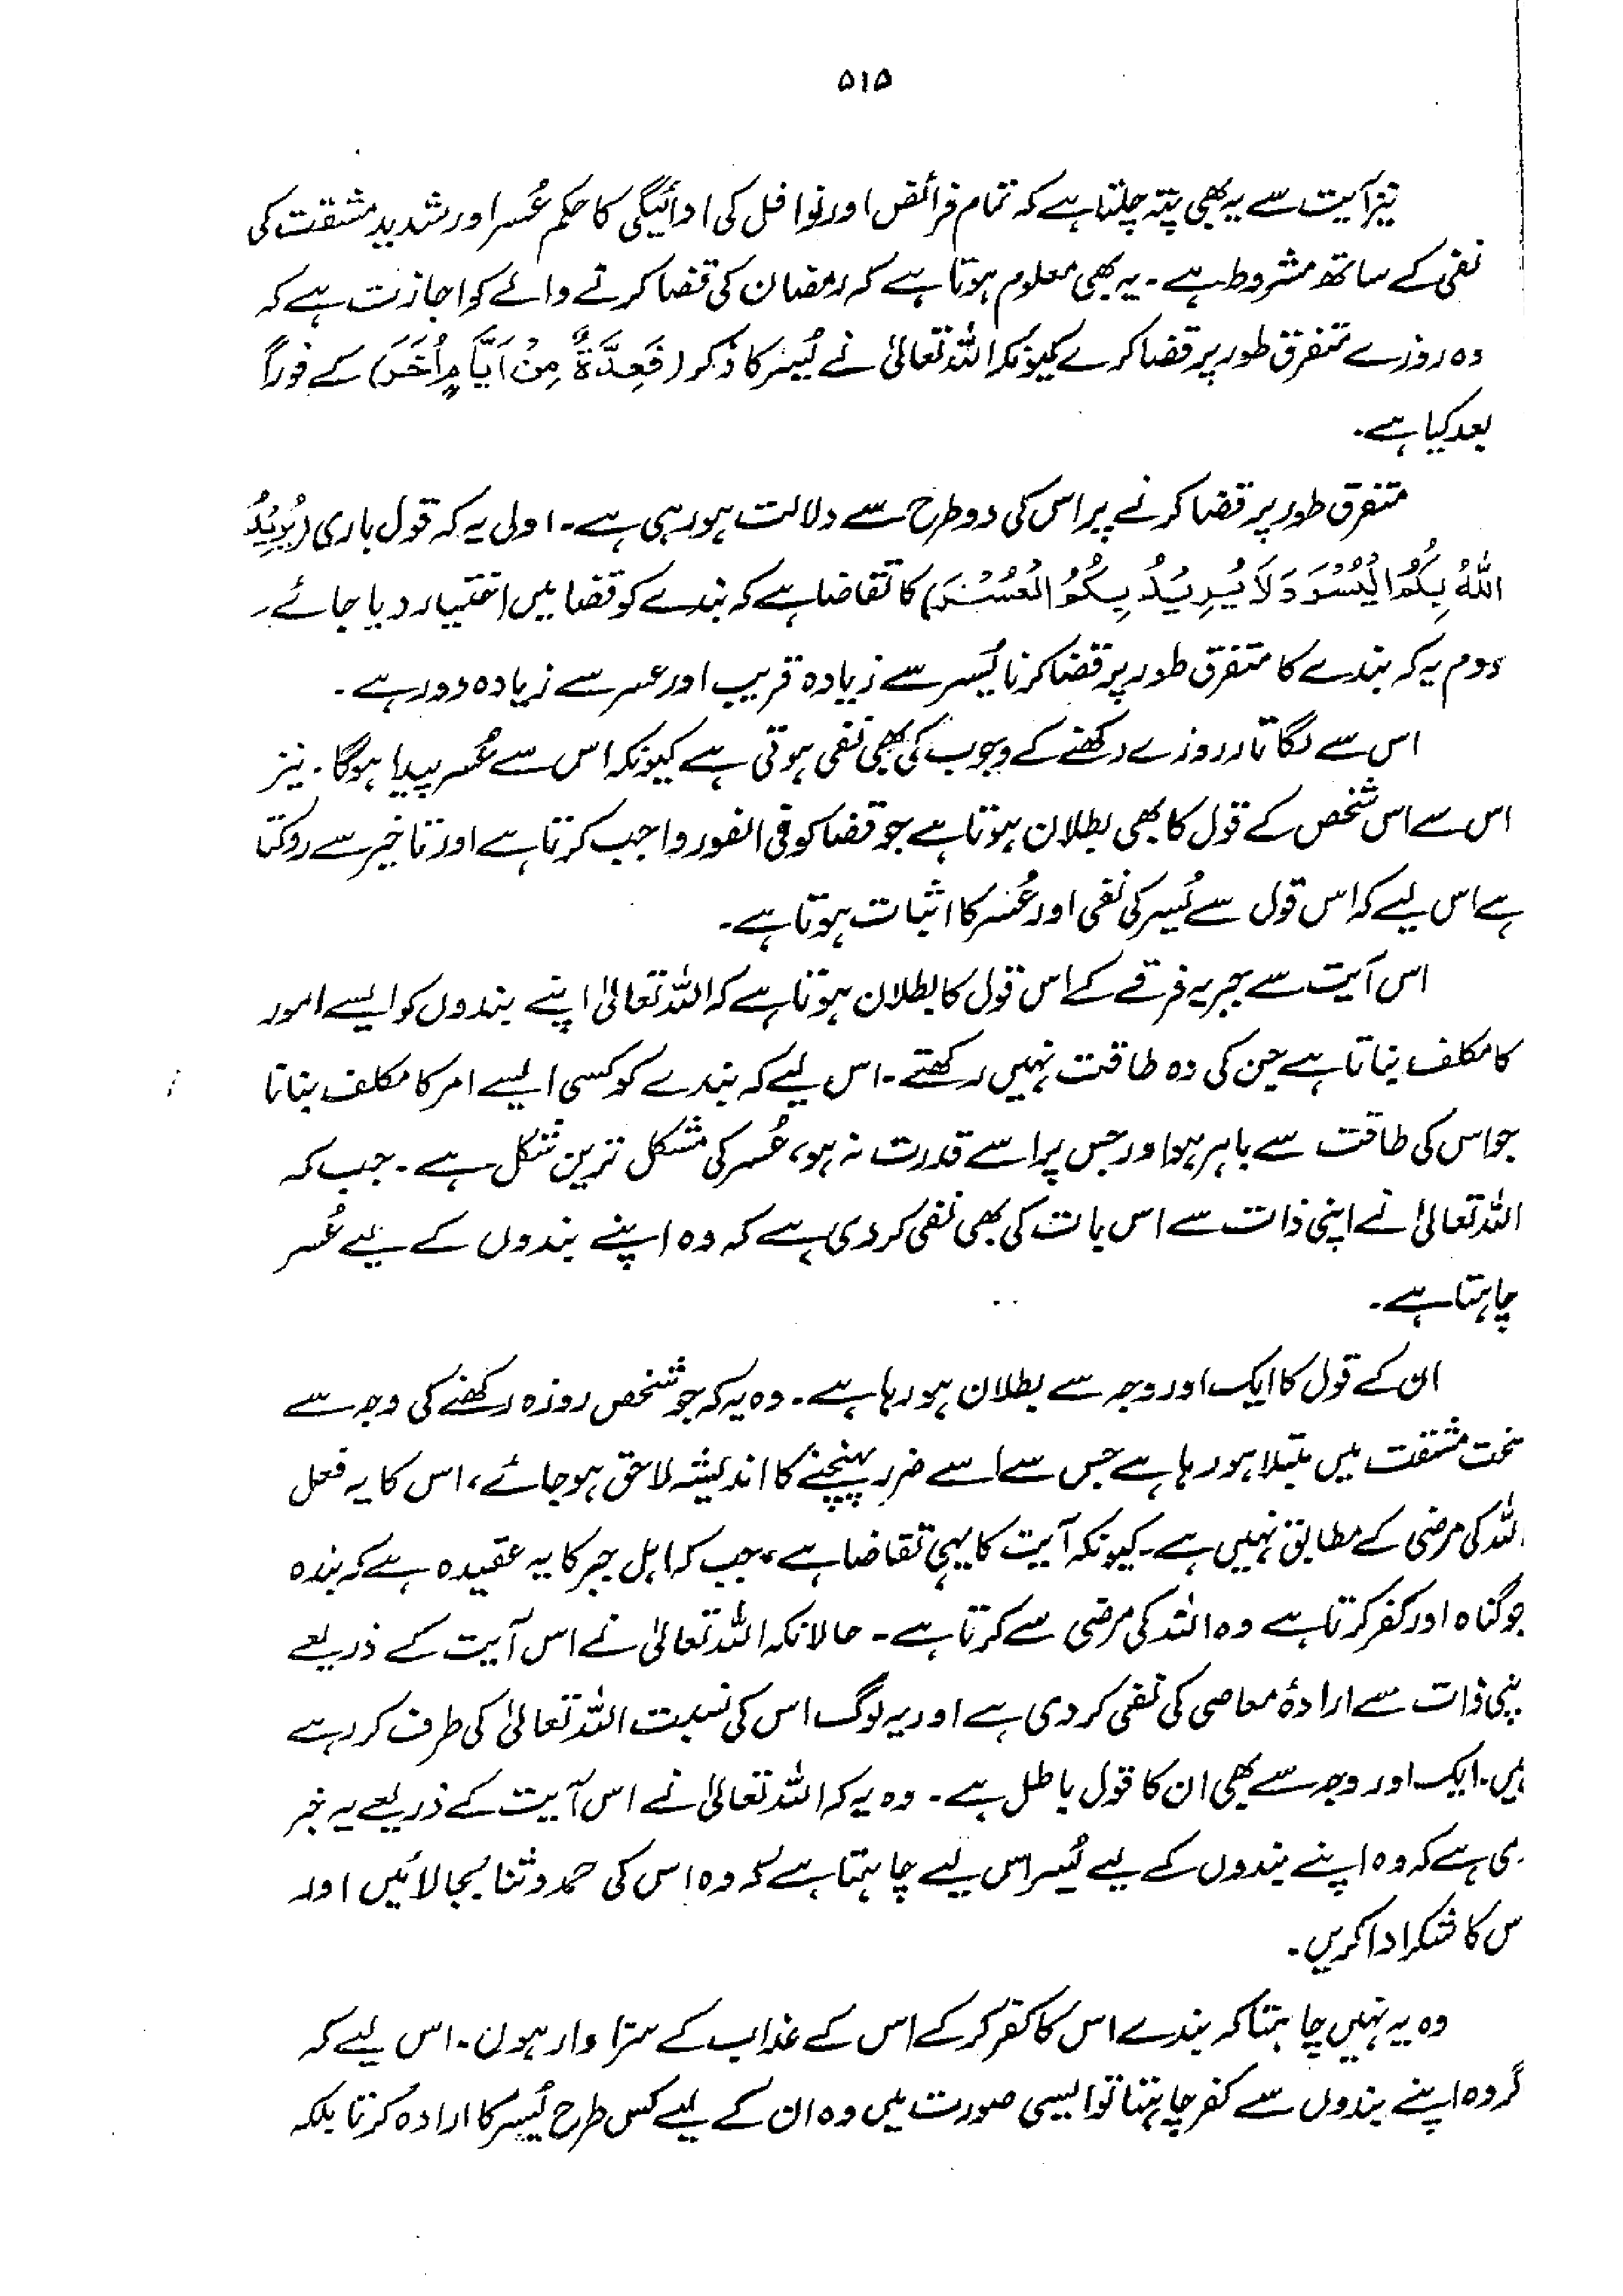 ۵۱۵
نیز آیت سے یہ بھی پتہ چلتا ہے کہ تمام فرائض اور نوافل کی ادائیگی کا حکم عُسر اور شدید مشقت کی
نفی کے ساتھ مشروط ہے۔ یہ بھی معلوم ہوتا ہے کہ رمضان کی قضا کرنے والے کو اجازت ہے کہ
وہ روزے متفرق طور پر قضا کرے کیونکہ اللہ تعالیٰ نے یُسر کا ذکر (فَعِدَّةٌ مِنْ اَیَّامٍ اُخَرَ) کے فوراً
بعد کیا ہے۔
متفرق طور پر قضا کرنے پر اس کی دو طرح سے دلالت ہو رہی ہے۔ اولی یہ کہ قول باری (یُرِیْدُ
اللّٰهُ بِکُمُ الْیُسْرَ وَلَا یُرِیْدُ بِکُمُ الْعُسْرَ) کا تقاضا ہے کہ بندے کو قضا میں اختیار دیا جائے۔
دوم یہ کہ بندے کا متفرق طور پر قضا کرنا یُسر سے زیادہ قریب اور عسر سے زیادہ دور ہے۔
اس سے لگاتار روزے رکھنے کے وجوب کی بھی نفی ہوتی ہے کیونکہ اس سے عُسر پیدا ہوگا۔ نیز
اس سے اس شخص کے قول کا بھی بطلان ہوتا ہے جو قضا کو فی الفور واجب کرتا ہے اور تاخیر سے روکتا
ہے اس لیے کہ اس قول سے یُسر کی نفی اور عُسر کا اثبات ہوتا ہے۔
اس آیت سے جبریہ فرقے کے اس قول کا بطلان ہوتا ہے کہ اللہ تعالیٰ اپنے بندوں کو ایسے امور
کا مکلف بناتا ہے جن کی وہ طاقت نہیں رکھتے۔ اس لیے کہ بندے کو کسی ایسے امر کا مکلف بنانا
جو اس کی طاقت سے باہر ہو اور جس پر اسے قدرت نہ ہو، عُسر کی مشکل ترین شکل ہے۔ جب کہ
اللہ تعالیٰ نے اپنی ذات سے اس بات کی بھی نفی کر دی ہے کہ وہ اپنے بندوں کے لیے عُسر
چاہتا ہے۔
ان کے قول کا ایک اور وجہ سے بطلان ہو رہا ہے۔ وہ یہ کہ جو شخص روزہ رکھنے کی وجہ سے
خت مشقت میں مبتلا ہو رہا ہے جس سے اسے ضرر پہنچنے کا اندیشہ لاحق ہو جائے، اس کا یہ فعل
للہ کی مرضی کے مطابق نہیں ہے۔ کیونکہ آیت کا یہی تقاضا ہے، جب کہ اہل جبر کا یہ عقیدہ ہے کہ بندہ
جو گناہ اور کفر کرتا ہے وہ اللہ کی مرضی سے کرتا ہے۔ حالانکہ اللہ تعالیٰ نے اس آیت کے ذریعے
پنی ذات سے ارادۂ معاصی کی نفی کر دی ہے اور یہ لوگ اس کی نسبت اللہ تعالیٰ کی طرف کر رہے
ہیں۔ ایک اور وجہ سے بھی ان کا قول باطل ہے۔ وہ یہ کہ اللہ تعالیٰ نے اس آیت کے ذریعے یہ خبر
ی ہے کہ وہ اپنے بندوں کے لیے یُسر اس لیے چاہتا ہے کہ وہ اس کی حمد و ثنا بجا لائیں اور
س کا شکر ادا کریں۔
وہ یہ نہیں چاہتا کہ بندے اس کا کفر کر کے اس کے عذاب کے سزا وار ہوں۔ اس لیے کہ
گر وہ اپنے بندوں سے کفر چاہتا تو ایسی صورت میں وہ ان کے لیے کس طرح یُسر کا ارادہ کرتا بلکہ